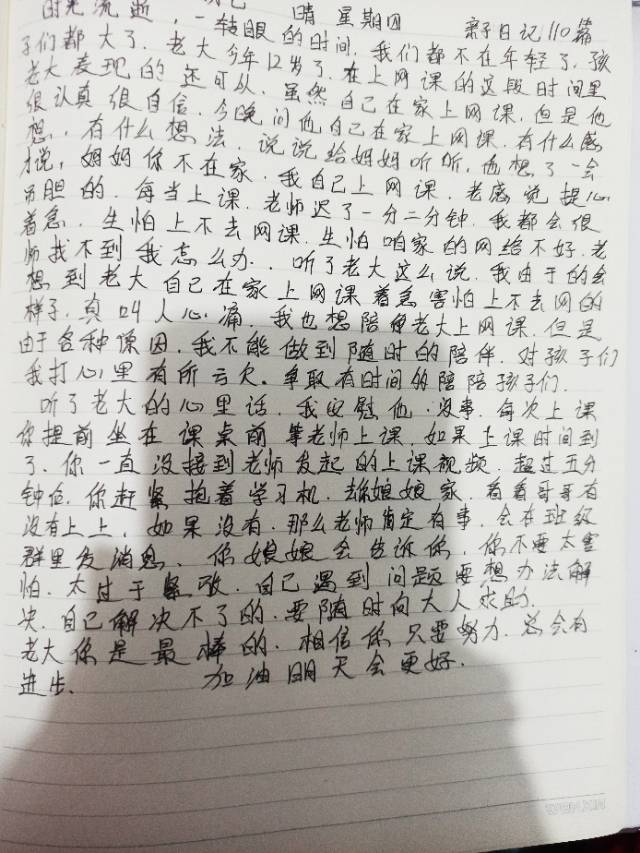 晴 星期四 亲子日记110篇
时光流逝，一转眼的时间.我们都不在年轻了.孩
子们都大了.老大今年12岁了.在上网课的这段时间里
老大表现的还可以.虽然自己在家上网课.但是他
很认真很自信.今晚问他自己在家上网课.有什么感
想.有什么想法.说说给妈妈听听.他想了一会
才说，妈妈你不在家.我自己上网课.老感觉提心
吊胆的.每当上课.老师迟了一分二分钟.我都会很
着急.生怕上不去网课.生怕咱家的网络不好.老
师找不到我怎么办..听了老大这么说.我由于的会
想到老大自己在家上网课着急害怕上不去网的
样子.真叫人心痛.我也想陪老大上网课.但是
由于各种原因.我不能做到随时的陪伴.对孩子们
我打心里有所亏欠.争取有时间多陪陪孩子们.
听了老大的心里话.我安慰他.没事.每次上课
你提前坐在课桌前等老师上课.如果上课时间到
了.你一直没接到老师发起的上课视频.超过五分
钟后.你赶紧抱着学习机.去你娘娘家.看看哥哥有
没有上上.如果没有.那么老师肯定有事.会在班级
群里发消息.你娘娘会告诉你.你不要太害
怕.太过于紧张.自己遇到问题要想办法解
决.自己解决不了的.要随时向大人求助.
老大你是最棒的.相信你只要努力.总会有
进步. 加油明天会更好.